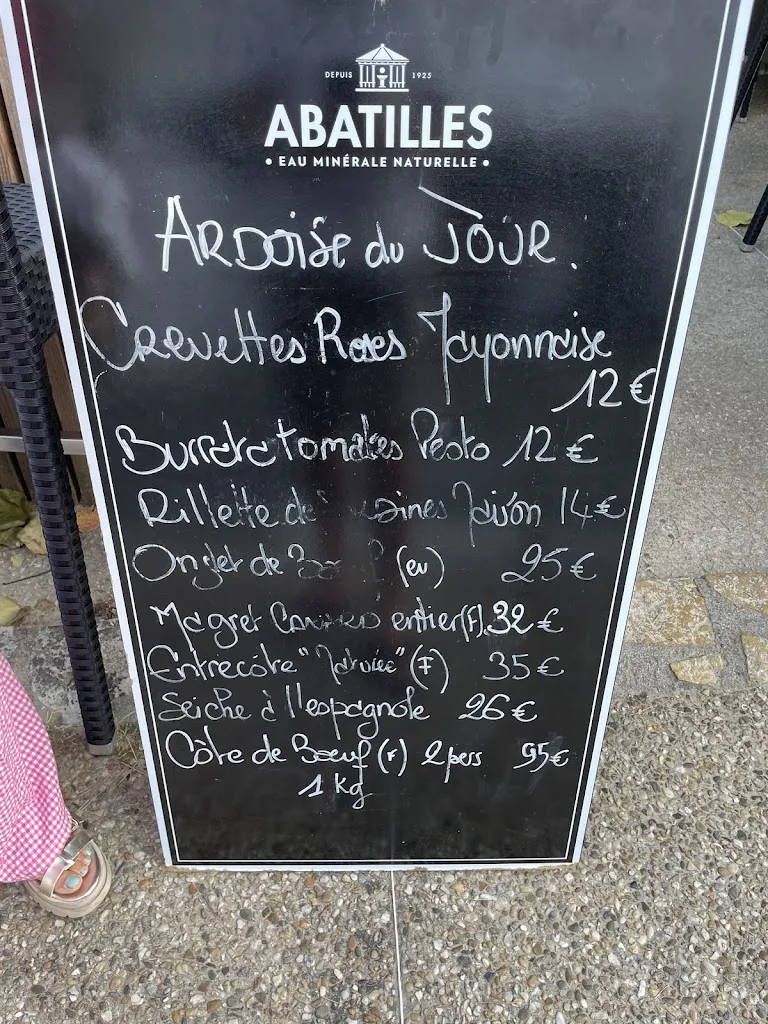 DEPUIS 1925
ABATILLES
• EAU MINÉRALE NATURELLE •
ARDOISE du JOUR.
Crevettes Roses Mayonnaise
12€
Burrata tomates Pesto 12€
Rillette de maison 14€
Onglet de (eu) 25€
Magret CANARD entier (F). 32€
Entrecôte "Maturée" (F) 35€
Seiche à l'espagnole 26€
Côte de Bœuf (F) 2pers 95€
1 kg